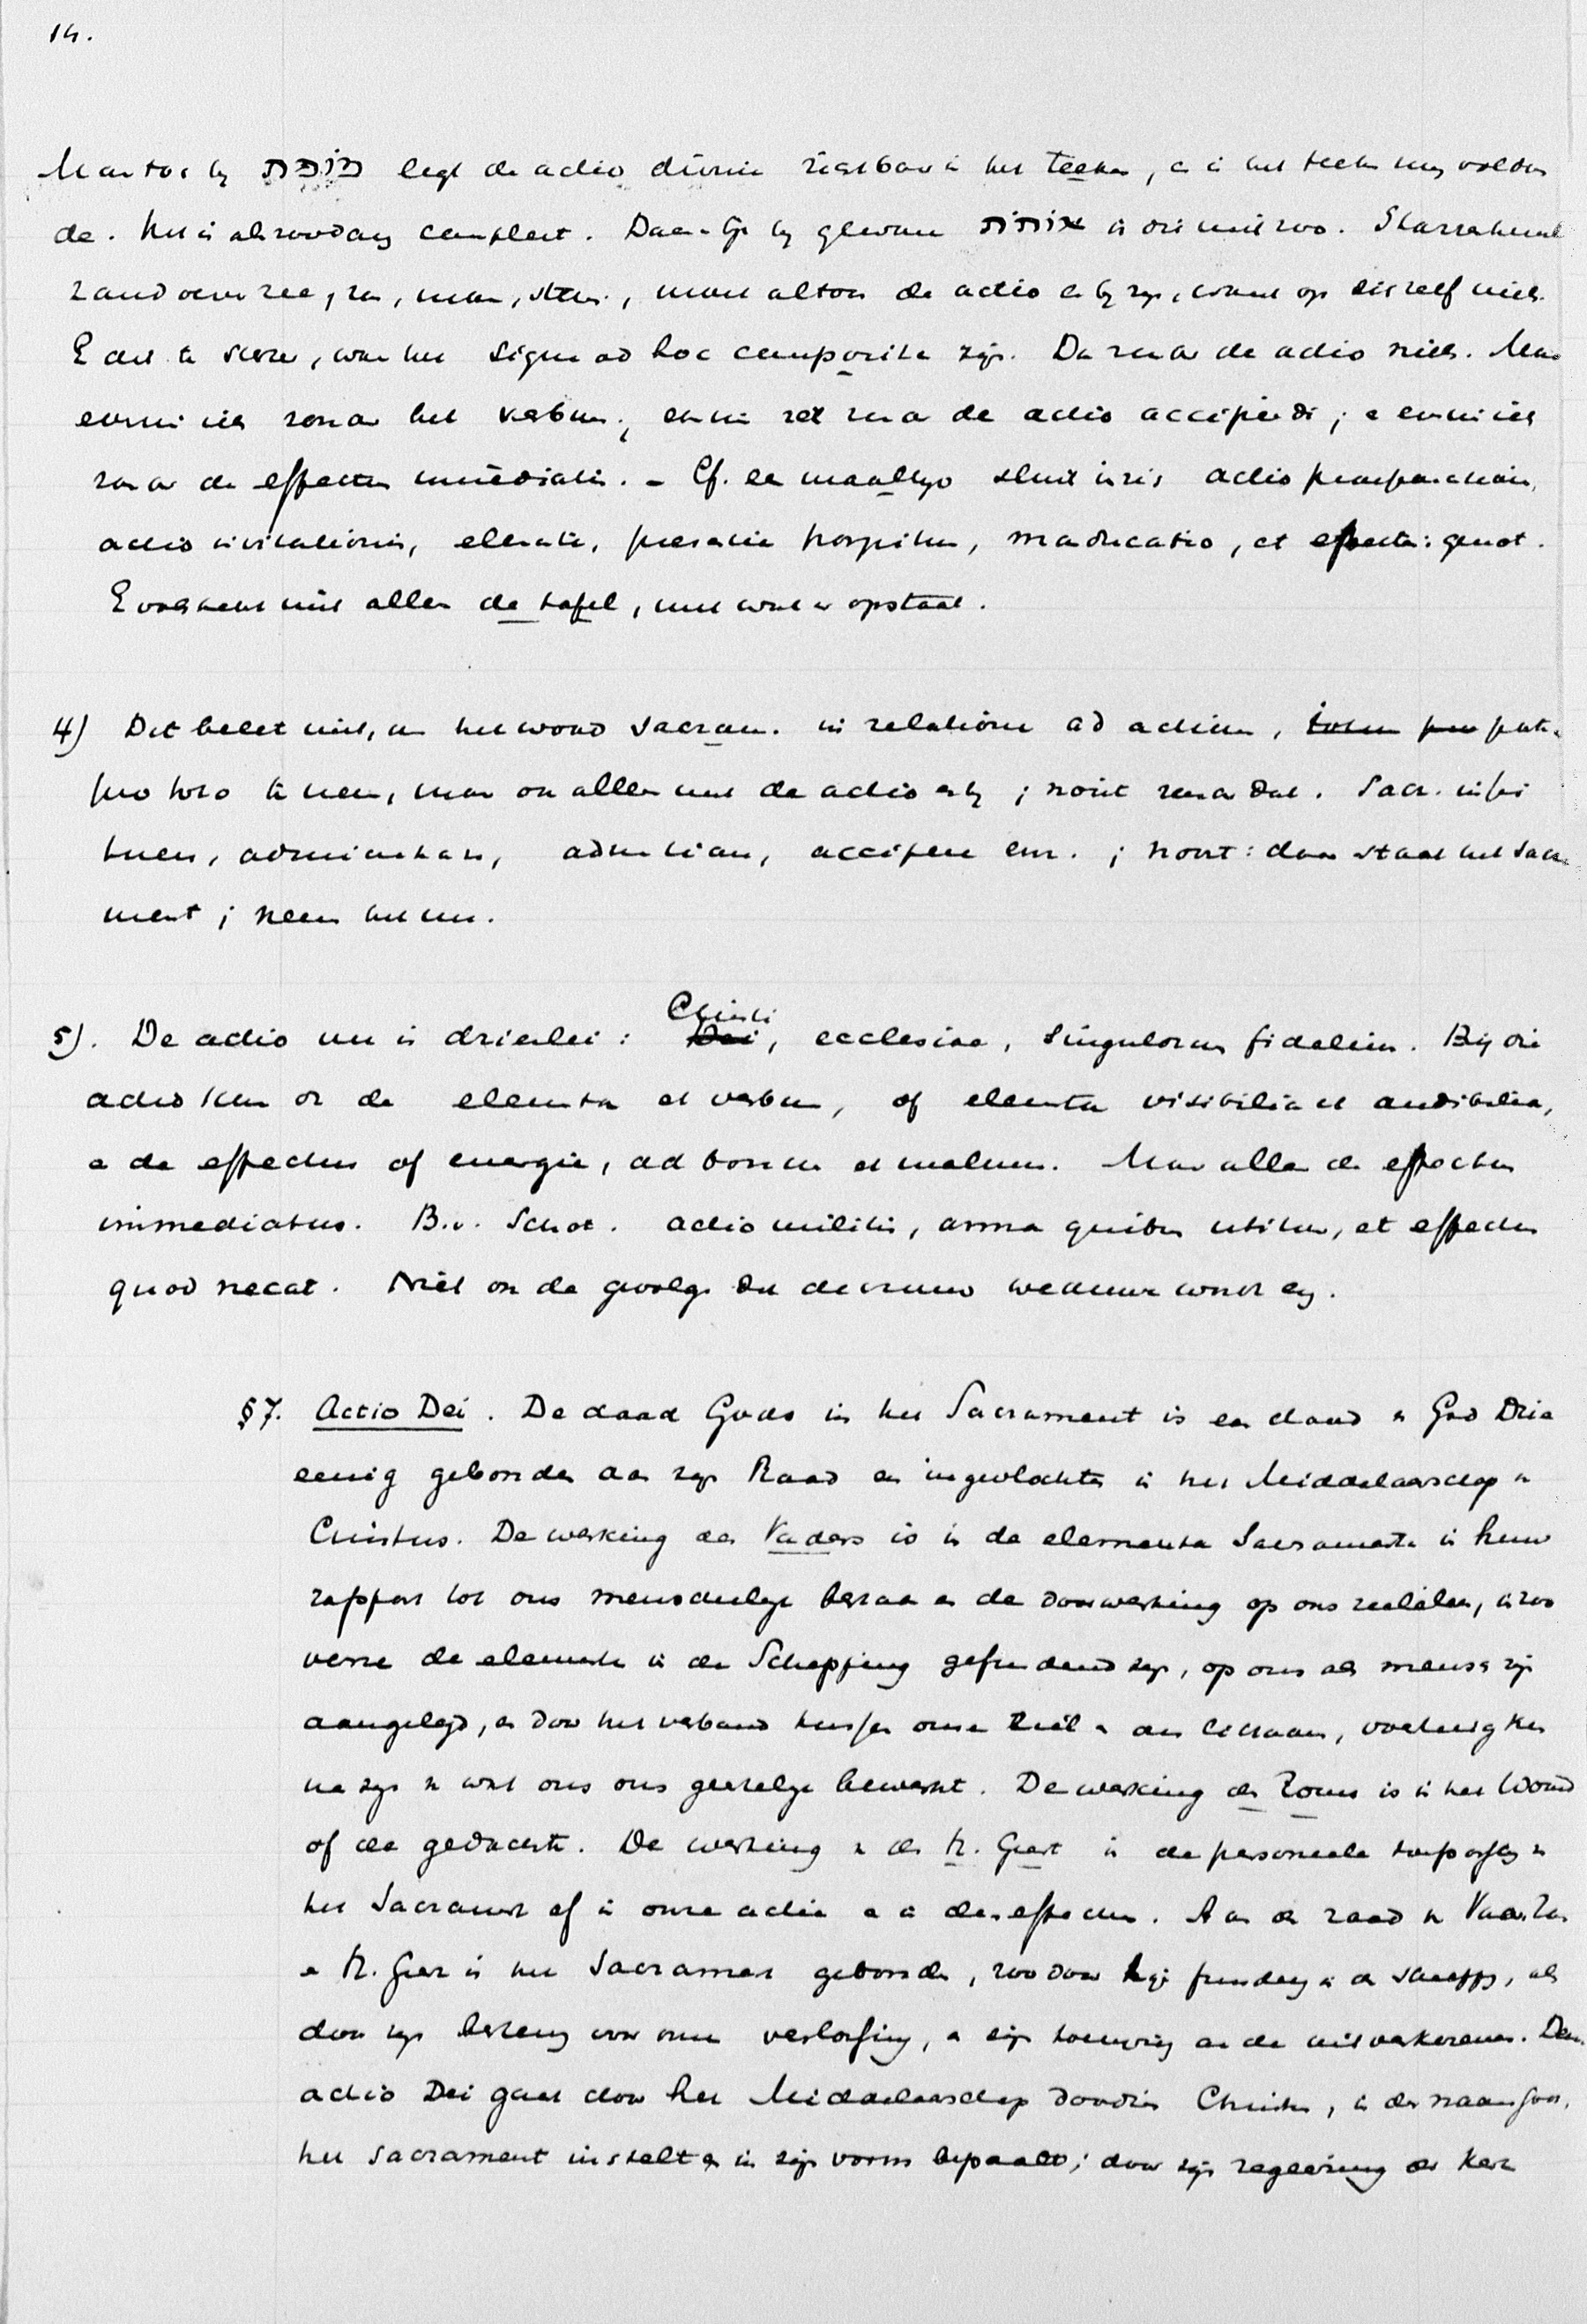 14.
Maar toch bij מופת legt de actio divina zichtbaar in het teeken, en in het teeken nog voldoen
de. Het is alzoo dan compleet. Daar bij gewone אותות is dit niet zoo. Starrehemel
zand oever zee, zon, maan, sterr., maar altoos de actio erbij, want op zichzelf niets.
E dus te sterker, waar het signa ad hoc composita zijn. Dan zonder de actio niets. Maar
evenmin iets zonder het verbum; evenmin iets zonder de actio accipiendi; en evenmin iets
zonder de effectus immediatus. – Cf. een maaltijd sluit in zich actio praeparationis,
actio invitationis, elementa, praesentia hospitum, manducatio, et effectus: genot.
E volstrekt niet alleen de tafel, met wat er op staat.
4) Dit belet niet, om het woord sacram. in relatione ad actionem, pars
pro toto te nemen, maar dan alleen met de actio erbij; nooit zonder dat. Sacr. insti
tuere, administrare, admittere, accipere enz.; nooit: daar staat het Sacra
ment; neem het nu.
5). De actio nu is drieerlei: Christi, ecclesiae, singulorum fidelium. Bij die
actio komen dan de elementa et verbum, of elementa visibilia et audibilia,
en de effectus of energie, ad bonum et malum. Maar alleen de effectus
immediatus. B.v. Schot. actio militis, arma quibus utitur, et effectus
quod necat. Niet ook de gevolgen dat de vrouw weduwe wordt enz.
§7. Actio Dei. De daad Gods in het Sacrament is een daad v. God Drie
eenig gebonden aan zijn Raad en ingevlochten in het Middelaarschap v.
Christus. De werking des Vaders is in de elementa Sacramenti in hun
rapport tot ons menschelijk bestaan en de doorwerking op ons zieleleven, in zoo
verre de elementen in de Schepping gefundeerd zijn, op ons als mensch zijn
aangelegd, en door het verband tusschen onze ziel en ons lichaam, voertuig kun
nen zijn v. wat ons ons geestelijk bewerkt. De werking des Zoons is in het Woord
of de gedachte. De werking v. den H. Geest is de personeele toepassing v.
het Sacrament of in onze actie en in den effectus. Aan den raad v. Vader, Zoon
en H. Geest is het Sacrament gebonden, zoo door zijn fundering in de schepping, als
door zijn bestemming voor onze verlossing, en zijn toewijzing aan de uitverkorenen. Deze
actio Dei gaat door het Middelaarschap doordien Christus, in den naam Gods,
het sacrament instelt en in zijn vorm bepaalt; door zijn regeering der Kerk